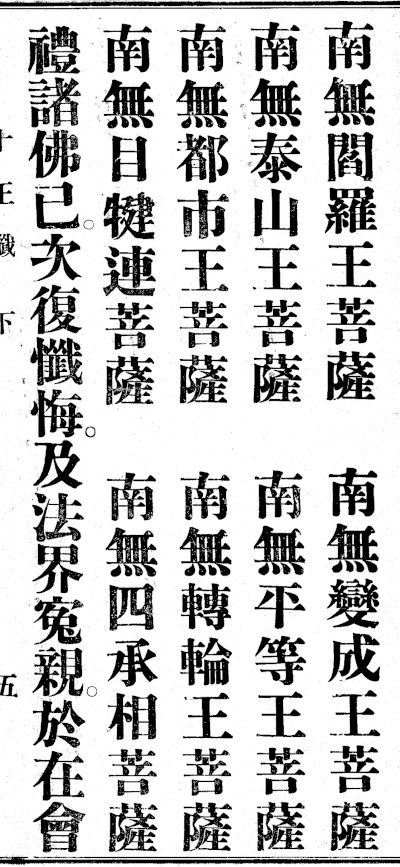 南無閻羅王菩薩　南無變成王菩薩
南無泰山王菩薩　南無平等王菩薩
南無都市王菩薩　南無轉輪王菩薩
南無目犍連菩薩　南無四承相菩薩
禮諸佛已。次復懺悔。及法界寃親。於在會
十王懺　下　五